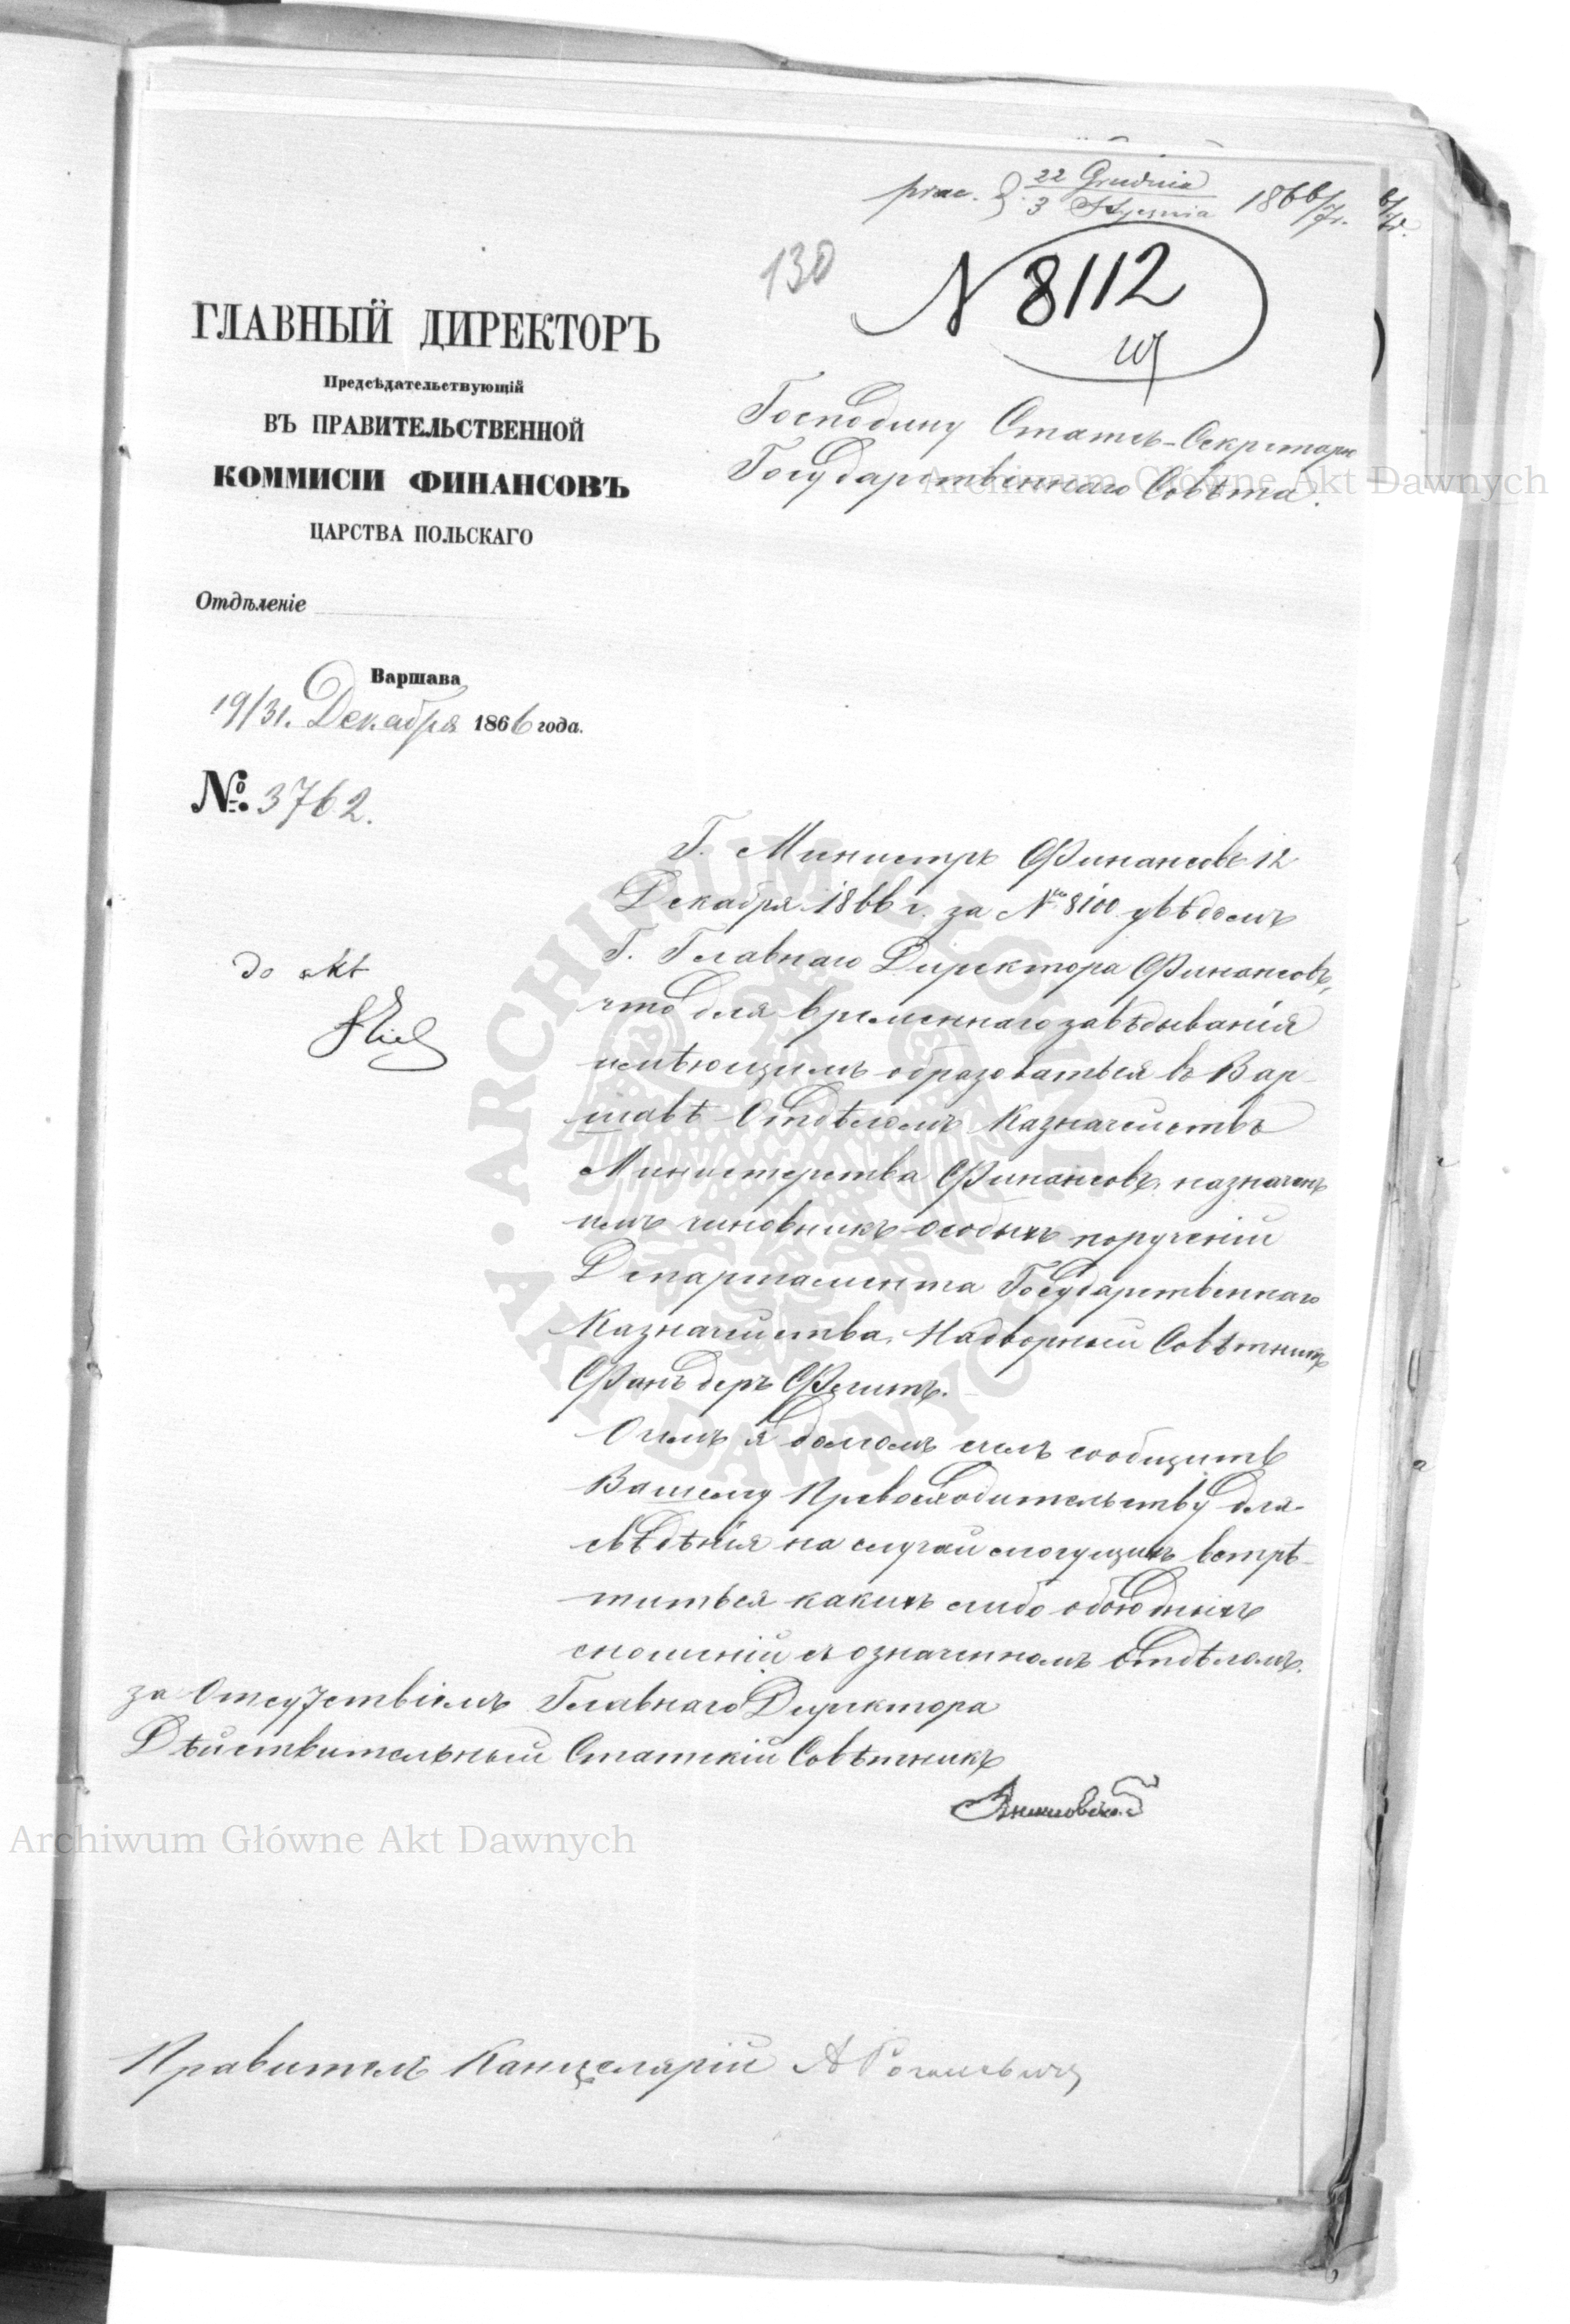 prae. d. 22 Grudnia 1866/7 r.
3 Stycznia
130
N 8112
ГЛАВНЫЙ ДИРЕКТОРЪ
Предсѣдательствующій
ВЪ ПРАВИТЕЛЬСТВЕННОЙ
КОММИСІИ ФИНАНСОВЪ
ЦАРСТВА ПОЛЬСКАГО
Отдѣленіе
Варшава
19/31. Декабря 1866 года.
№ 3762.
Господину Статсъ-Секретарю
Государственнаго Совѣта.
Г. Министръ Финансовъ 12
Декабря 1866 г. за № 8100 увѣдомъ
Г. Главнаго Директора Финансовъ,
что для временнаго завѣдыванія
имѣющимъ образоваться въ Вар-
шавѣ Отдѣломъ Казначействъ
Министерства Финансовъ, назначенъ
имъ чиновникъ особыхъ порученій
Департамента Государственнаго
Казначейства, Надворный Совѣтникъ
Фанъ деръ Флитъ.
О чемъ я долгомъ счелъ сообщить
Вашему Превосходительству для
свѣдѣнія на случай могущихъ встрѣ-
титься какихъ либо обоюдныхъ
сношеній съ означеннымъ Отдѣломъ.
до akt
за Отсутствіемъ Главнаго Директора
Дѣйствительный Статскій Совѣтникъ
Правитель Канцеляріи А
Archiwum Główne Akt Dawnych
Archiwum Główne Akt Dawnych
ARCHIWUM GŁÓWNE AKT DAWNYCH